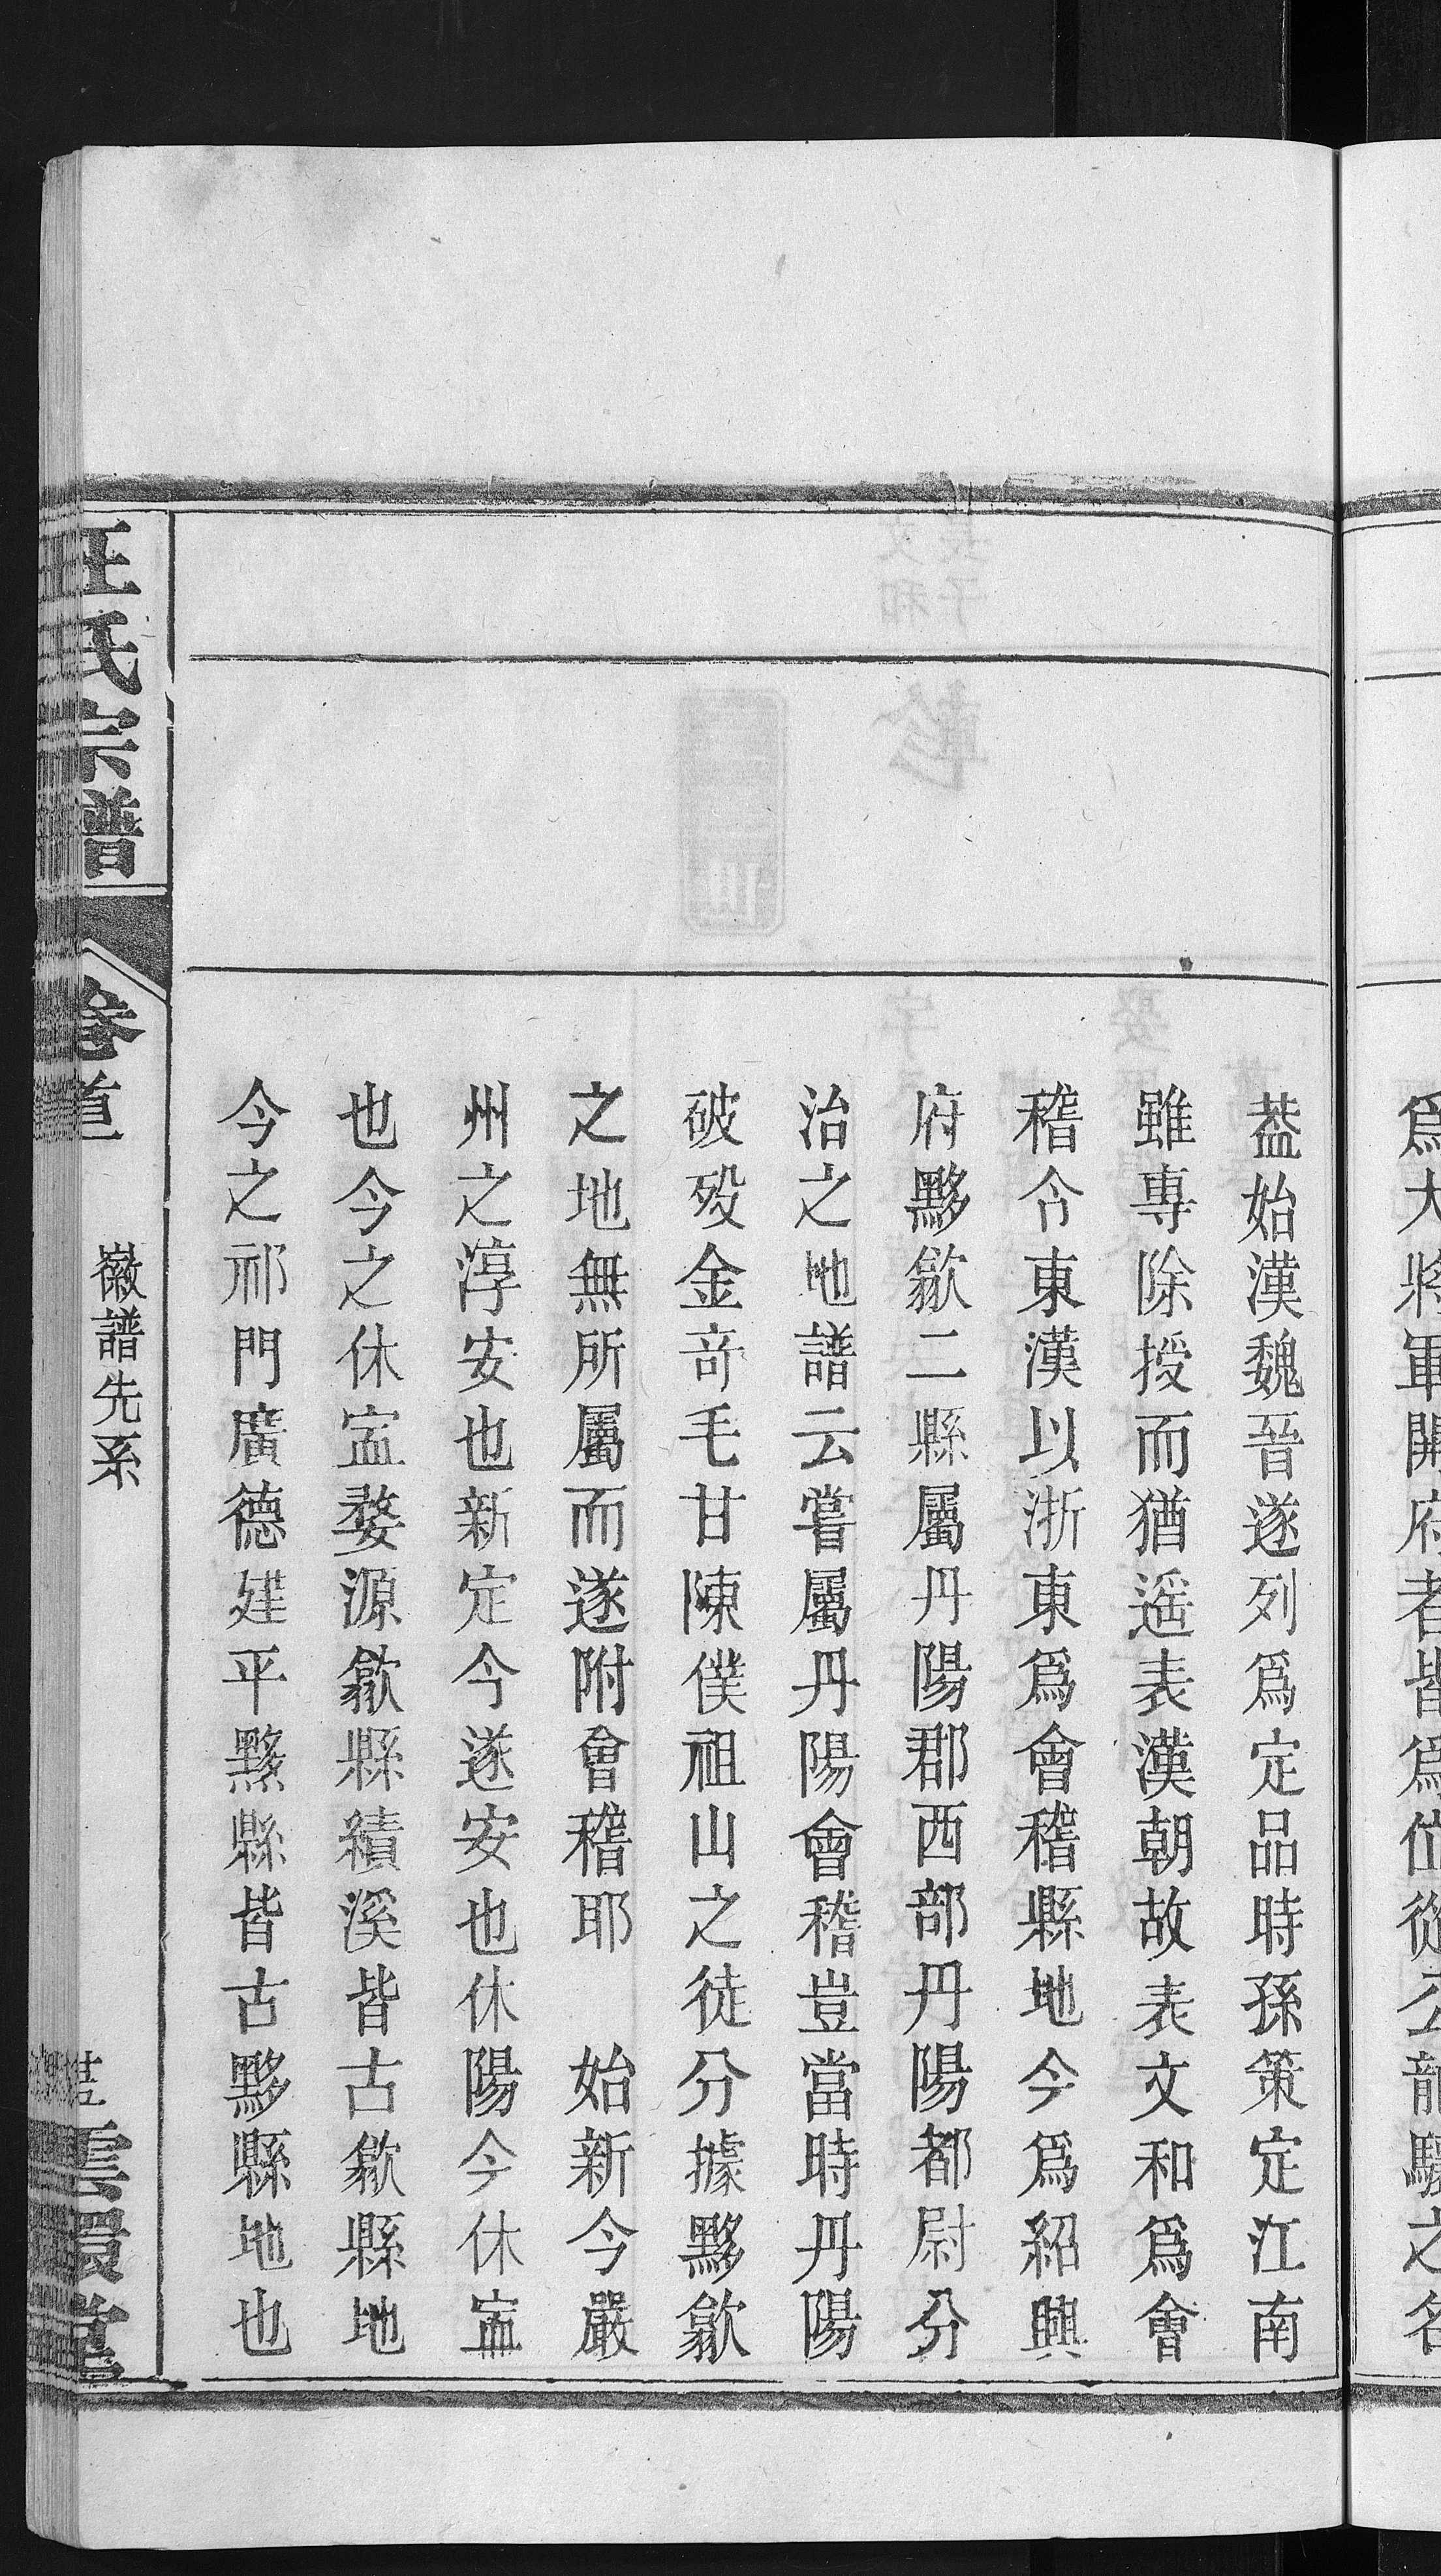 為大將軍開府者皆為位從公龍驤之名
葢始漢魏晉遂列爲定品時孫策定江南
雖專除授而猶遥表漢朝故表文和爲會
稽令東漢以浙東爲會稽縣地今爲紹興
府黟歙二縣屬丹陽郡西部丹陽都尉分
治之地譜云嘗屬丹陽會稽豈當時丹陽
破殁金奇毛甘陳僕祖山之徒分據黟歙
之地無所屬而遂附會稽耶　始新今嚴
州之淳安也新定今遂安也休陽今休寍
也今之休寍婺源歙縣績溪皆古歙縣地
今之祁門廣德建平黟縣皆古黟縣地也
汪氏宗譜
卷首
徽譜先系
雲環堂